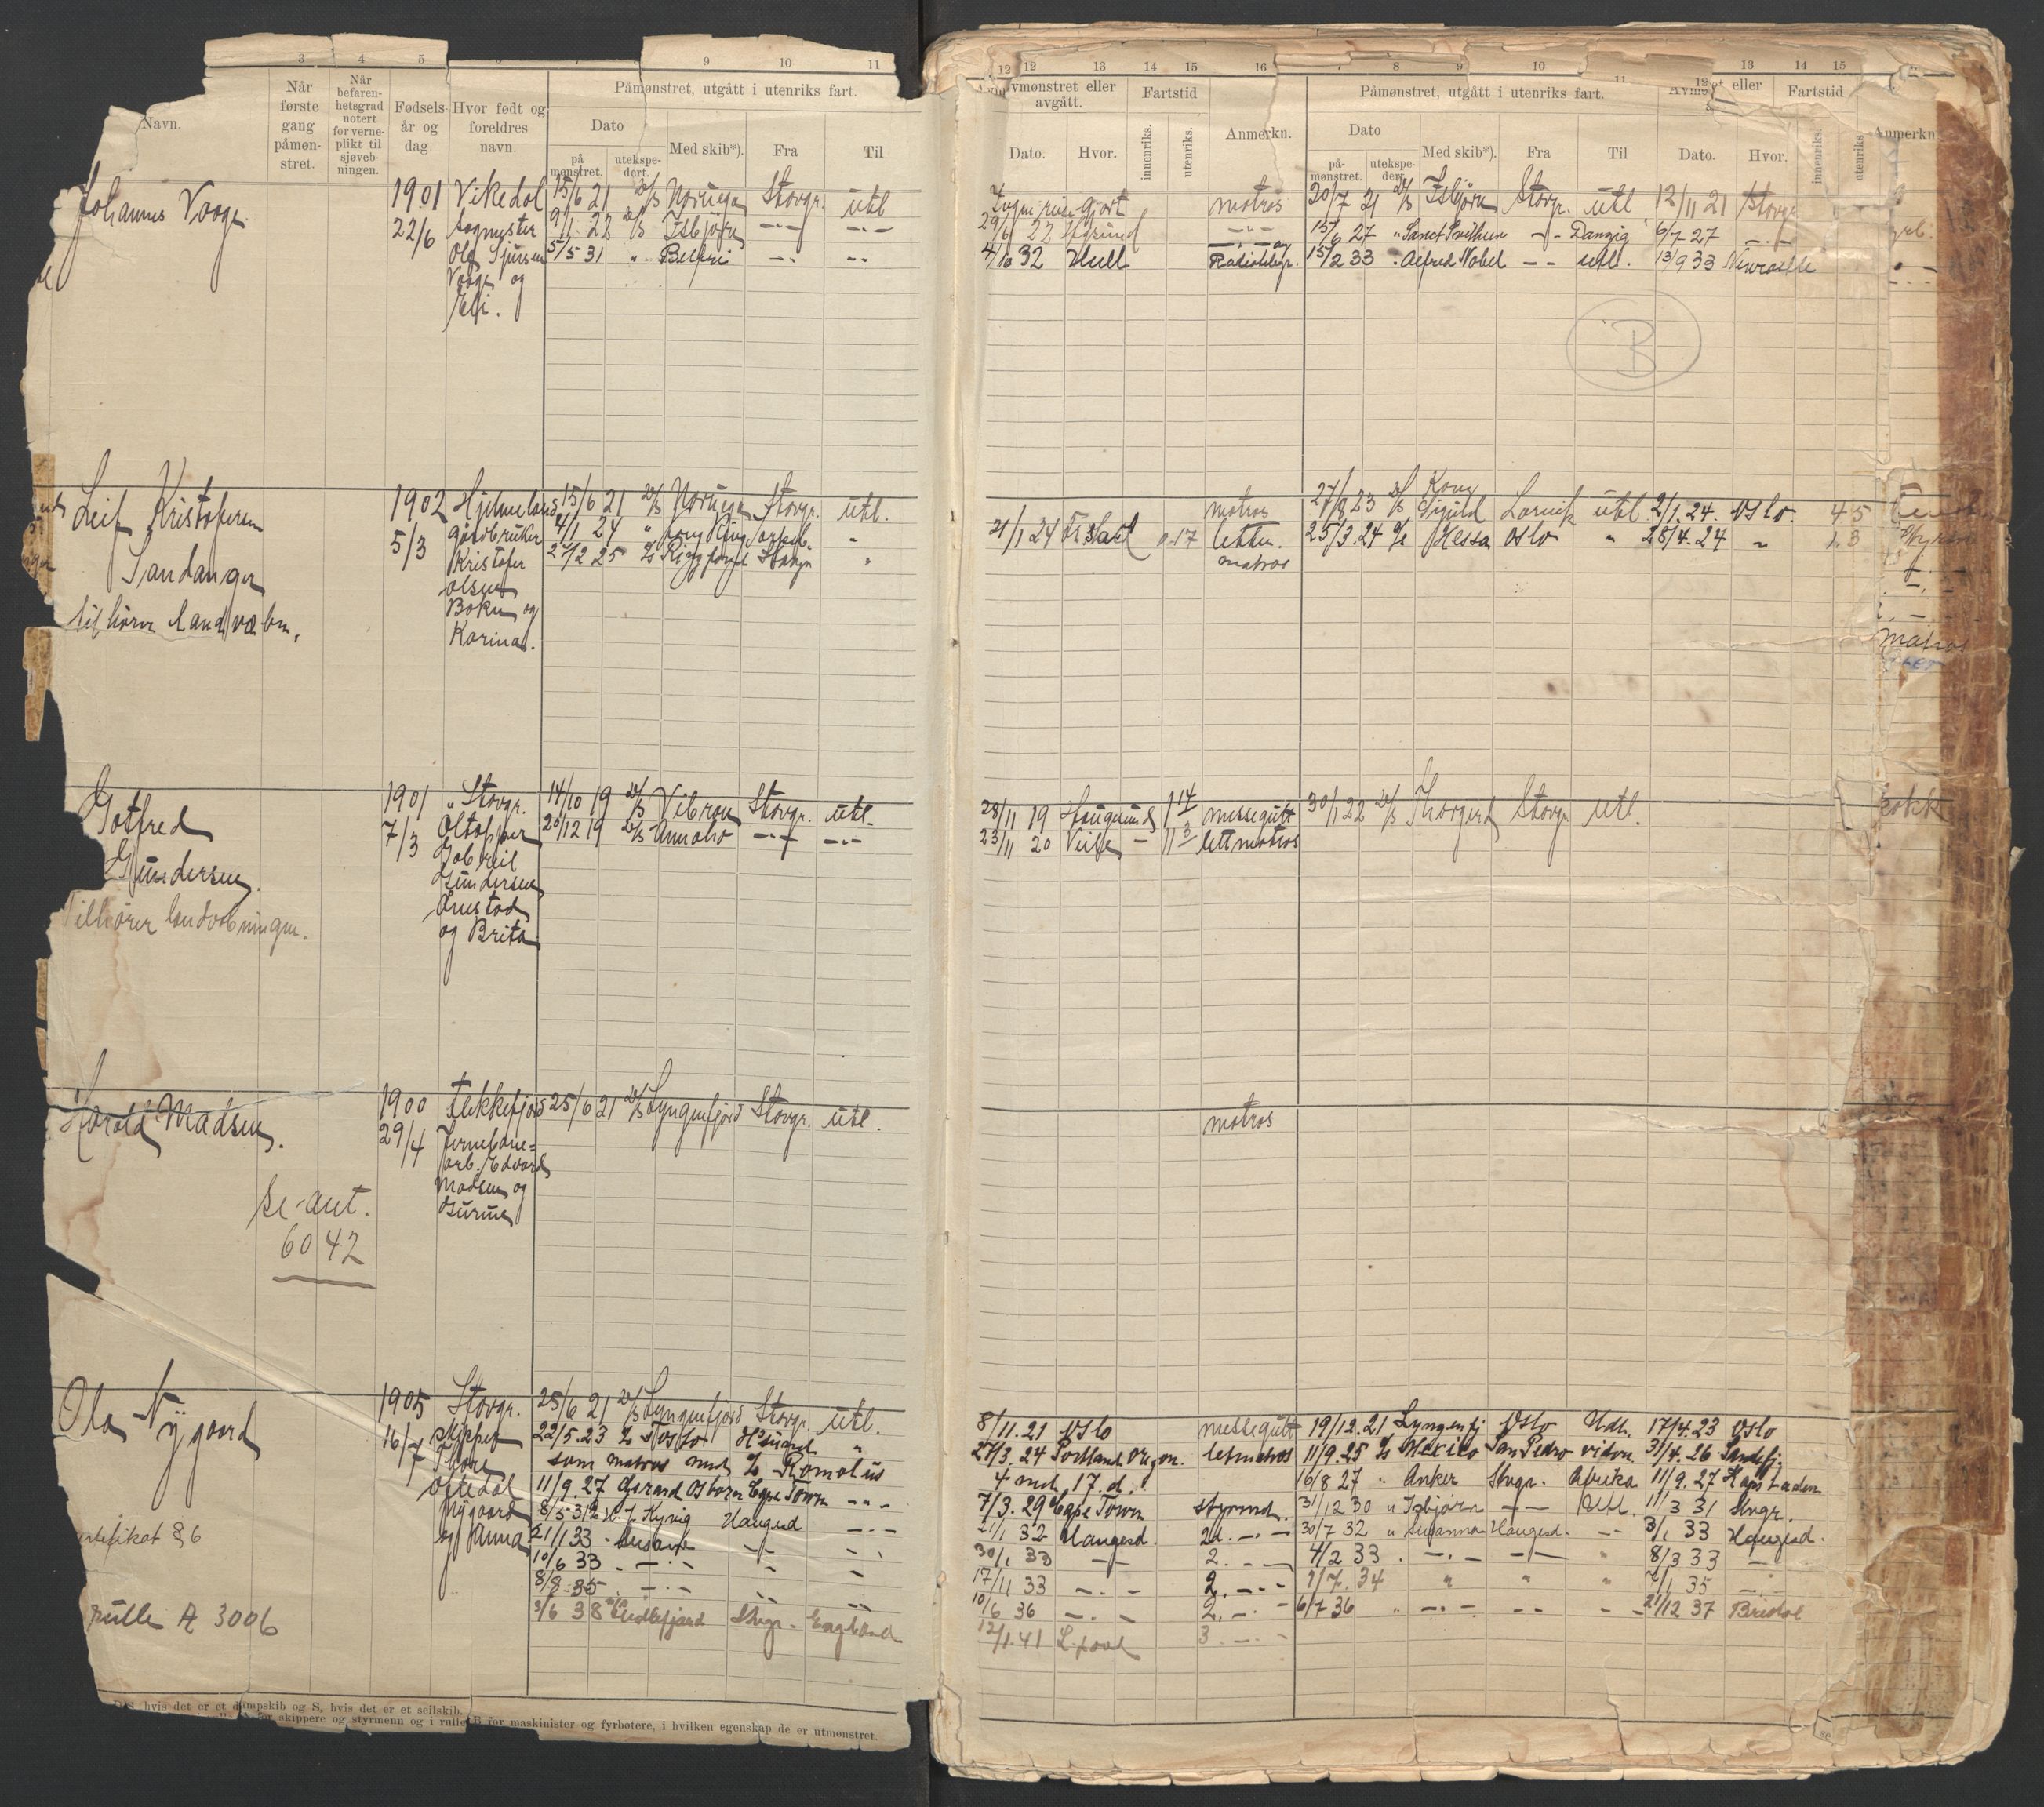 3 4 5 9 10 11
Navn.
Når første gang påmøn- stret.
Når befaren- hetsgrad notert for verne- plikt til sjøveb- ningen.
Fødsels- år og dag
Hvor født og foreldres navn.
Påmønstret, utgått i utenriks fart.
Dato
på mønstret.
utekspe- dert.
Med skib*).
Fra
Til
12 12 13 14 15 16 7 8 9 10 11 12 13 14 15
Avmønstret eller avgått.
Fartstid
Dato.
Hvor.
innenriks.
utenriks.
Anmerkn.
Påmønstret, utgått i utenriks fart.
Dato
på- mønstret.
utekspe- dert.
Med skib*).
Fra
Til
eller
Fartstid
Dato.
Hvor.
innenriks.
utenriks.
Anmerkn
Johannes Vaage
1901
22/6
Vikedal
Sagmester
Ole Sjursen
Vaage og
Eli.
15/6 21 D/S Noruega Stavgr. utl
9/1 22 D/S Isbjørn -"- -"-
5/5 31 " Bellini -"- -"-
Ingen reise gjort matros 20/7 21 D/S Isbjørn Stavgr. utl 12/11 21 Stavgr
29/6 22 Hgsund -"- 15/6 27 " Sanct Svithun -"- Danzig 6/7 27 -"-
4/10 32 Hull Radiotelegr. 15/2 33 " Alfred Nobel -"- utl. 13/9 33 Newcastle
B
Leif Kristofersen
Sandanger
tilhører landvæbn.
1902
5/3
Hjelmeland
gårdbruker
Kristofer
Olsen
Bokn og
Karina.
15/6 21 D/S Noruega Stavgr. utl.
4/1 24 "
2/2 25 Ringfond Stavgr "
matros 27/8 23 D/S Kong Sigurd Larvik utl 2/1 24. Oslo 4 5
21/1 24 Fr.stad 0.17 lettm. 25/3.24 Hessa Oslo " 28/4.24 " 1.3
matros
matros
Gotfred
Gundersen
Tilhører landvæbningen.
1901
7/3
Stavgr.
Øltapper
Gabriel
Gundersen
Ørestad
og Brita
14/10 19 D/S Vibran Stavgr. utl.
20/12 19 D/S Annaho -"- -"-
28/11 19 Haugesund 1 14 messegutt 30/1 22 D/S Thorgerd Stavgr utl.
23/11 20 Veile - 11 3 lettmatros
kokk
Harald Madsen.
se ant.
6042
1900
29/4
Flekkefjord
Jernbane-
arb. Edvard
Madsen og
Gurine
25/6 21 D/S Lyngenfjord Stavgr. utl.
matros
Ola Nygaard
1905
16/7
Stavgr.
skipper
Thore
Oftedal
Nygaard
og Anna
25/6 21 D/S Lyngenfjord Stavgr. utl.
22/5.23 Tosto H'sund "
som matros med Romolus
11/9.27 Gerard Osborn Cape Town -"-
8/5-31 Kyvig Haugesd -"-
21/1 33 - Susanna -"- -"-
10/6 33 -"- " "
8/8 35 -"- -"- -"-
3/6 38 Lidlefjord Stvgr. England
8/11.21 Oslo messegutt 19/12.21 Lyngenfj Oslo Udl. 17/4.23 Oslo
27/3.24 Portland Oregon. letmatros 11/9.25 Mexico San Pedro videre. 31/4.26 Sandefj.
4 md. 17. d. 16/8 27 " Anker Stvgr. Afrika 11/9.27 Kapstaden
7/3.29 Cape Town styrmd. 31/12 30 " Isbjørn -"- Utl. 11/3 31 Stvgr.
21/1 32 Haugesd. 2d. -"- 30/7 32 " Susanna Haugesd. -"- 3/1 33 Haugesd.
30/1 33 -"- 2. -"- 4/2 33. -"- -"- " 8/3 33 -"-
17/11 33 -"- 2. -"- 1/7.34 " " " 7/1 35 -"-
10/6 36 -"- 2. -"- 6/7 36 " -"- -"- -"- 21/12 37 Bristol
12/1.41 L.pool 3. -"-
rulle A 3006
hvis det er et dampskib og S, hvis det er et seilskib.
for skippere og styrmenn og i rulle B for maskinister og fyrbøtere, i hvilken egenskap de er utmønstret.